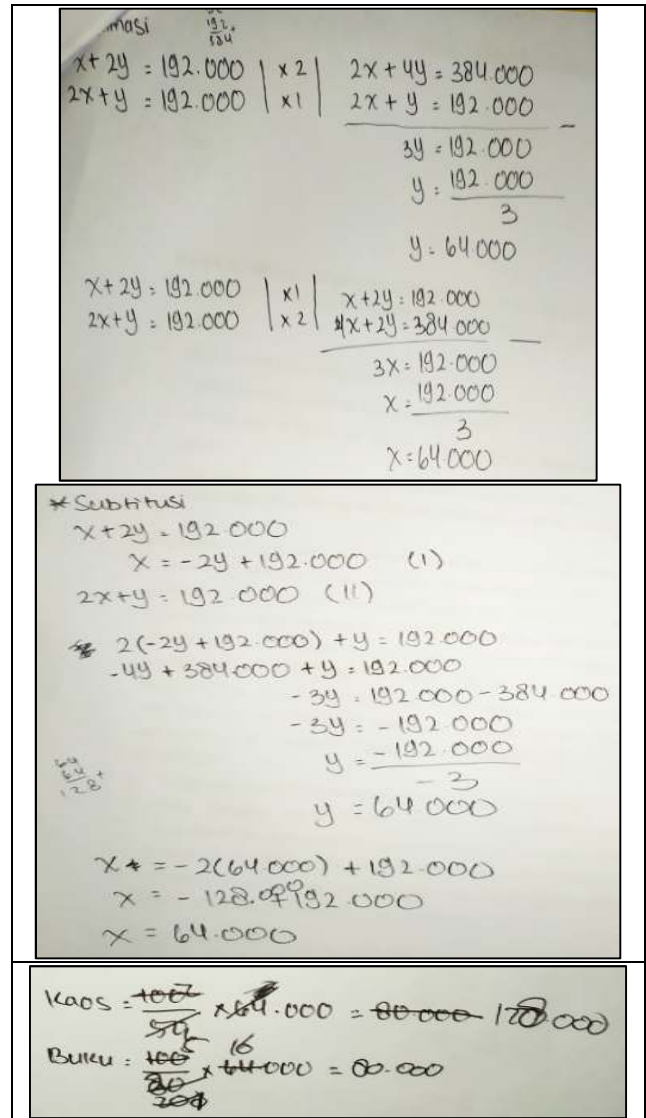 masi
192.
384
x + 2y = 192.000 | x 2 | 2x + 4y = 384.000
2x + y = 192.000 | x 1 | 2x + y = 192.000
−
3y = 192.000
y = 192.000
3
y = 64.000
x + 2y = 192.000 | x1 | x + 2y = 192.000
2x + y = 192.000 | x 2 | 4x + 2y = 384.000
−
3x = 192.000
x = 192.000
3
x = 64.000
* Subtitusi
x + 2y = 192.000
x = -2y + 192.000 (I)
2x + y = 192.000 (II)
2(-2y + 192.000) + y = 192.000
-4y + 384.000 + y = 192.000
-3y = 192.000 - 384.000
-3y = -192.000
y = -192.000
-3
y = 64.000
64
64 +
128
x = -2(64.000) + 192.000
x = -128.000+192.000
x = 64.000
Kaos = 100 × 64.000 = 80.000 128.000
50
Buku = 100 5 × 64.000 16 = 80.000
80